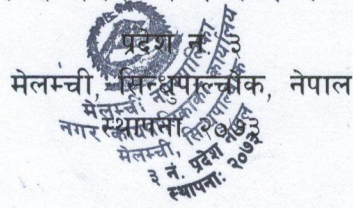 प्रदेश नं. ३
मेलम्ची, सिन्धुपाल्चोक, नेपाल
स्थापना २०७३
मेलम्ची नगरपालिका
नगर कार्यपालिकाको कार्यालय
मेलम्ची, सिन्धुपाल्चोक
३ नं. प्रदेश नेपाल
स्थापनाः २०७३